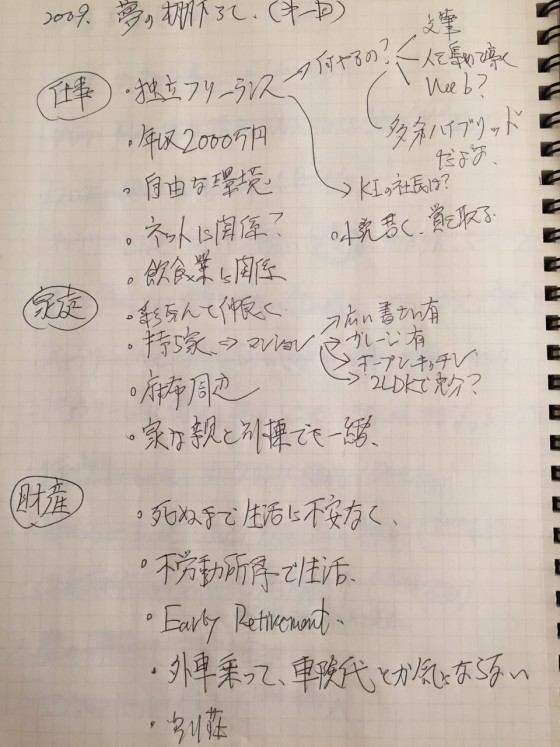 2009. 夢の棚下ろし.(第一回)
仕事
・独立フリーランス → 何やるの?
文筆
人を集めて導く
Web?
多分ハイブリッド
だよな.
→ KIの社長は?
・年収2000万円
・自由な環境
・小説書く、賞を取る
・ネットに関係?
・飲食業に関係
家庭
・奥さんと仲良く
・持ち家 ⇒ マンション
→ 広い書さい有
→ ガレージ有
→ オープンキッチン
→ 2LDKで充分?
・麻布周辺
・家は親と別棟でも一緒、
財産
・死ぬまで生活に不安なく、
・不労動所得で生活、
・Early Retirement、
・外車乗って、車険代とか気にならない
・別荘